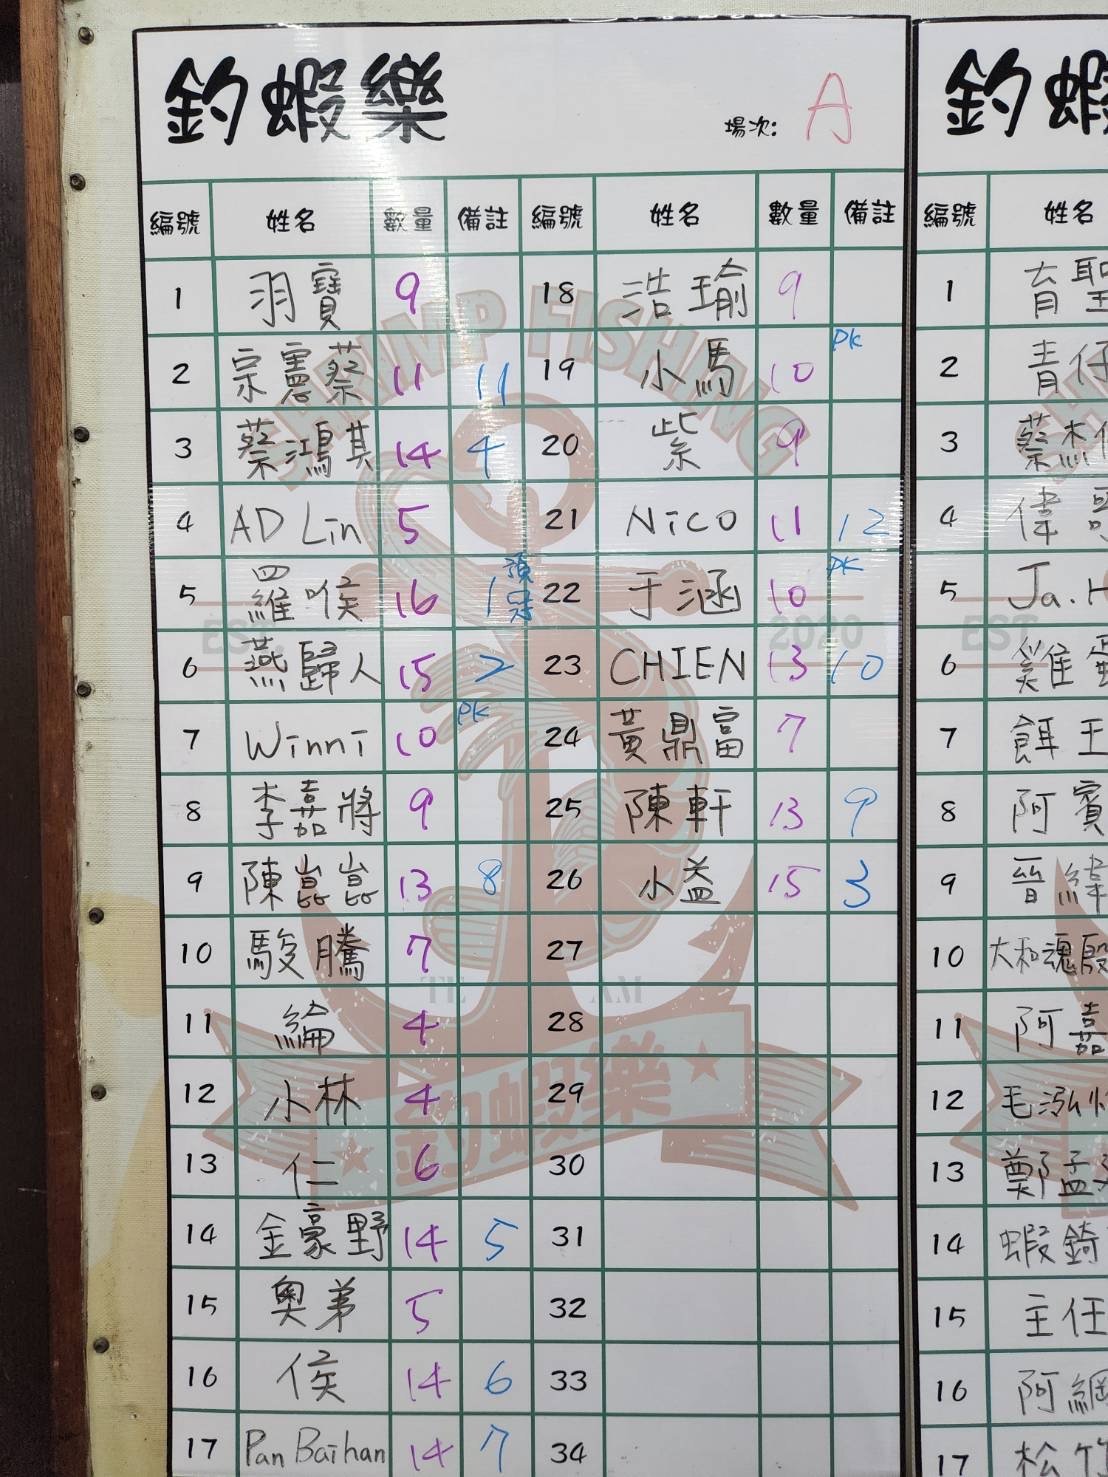 釣蝦樂
場次: A
編號 姓名 數量 備註 編號 姓名 數量 備註
1 羽寶 9 18 浩瑜 9
2 宗憲蔡 11 11 19 小馬 10 PK
3 蔡鴻其 14 4 20 紫 9
4 AD Lin 5 21 Nico 11 12
5 羅喉 16 1 預冠 22 于涵 10 PK
6 燕歸人 15 2 23 CHIEN 13 10
7 Winni 10 PK 24 黃鼎富 7
8 李嘉將 9 25 陳軒 13 9
9 陳崑崑 13 8 26 小益 15 3
10 駿騰 7 27
11 綸 4 28
12 小林 4 29
13 仁 6 30
14 金豪野 14 5 31
15 奧弟 5 32
16 侯 14 6 33
17 Pan Baihan 14 7 34
SHRIMP FISHING
EST. 2020
TE AM
釣蝦樂
釣蝦
編號 姓名
1 育聖
2 青仔
3 蔡杰
4 偉
5 Ja.H
6 雞蛋
7 餌王
8 阿賓
9 晉緯
10 大和魂殷
11 阿嘉
12 毛泓
13 鄭孟
14 蝦錡
15 主任
16 阿網
17 松竹
EST